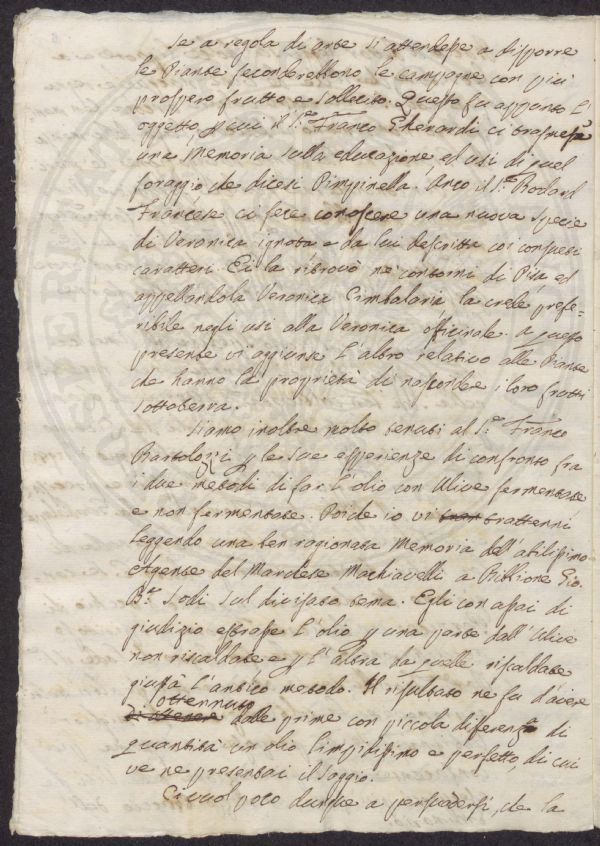 se a regola di arte si attendesse a disporre
le Piante seconderebbono le campagne con più
prospero frutto e sollecito. Questo fu appunto l'
oggetto, p cui il S.r Franco Gherardi ci trasmesse
una Memoria sulla educazione ed usi di quel
foraggio che dicesi Pimpinella. Anco il S.r Rodard
Francese ci fece conoscere una nuova specie
di Veronica ignota e da lui descritta coi consueti
caratteri. Ei la ritrovò ne' contorni di Pisa ed
appellandola Veronica Cimbalaria la crede prefe=
ribile negli usi alla Veronica officinale. a questo
presente vi aggiunse l'altro relativo alle Piante
che hanno la proprietà di nascondere i loro frutti
sotto terra.
Siamo inoltre molto tenuti al S.r Franco
Bartolozzi p le sue esperienze di confronto fra
i due metodi di far l'olio con Ulive fermentate
e non fermentate. Poiche io vi trattenni
leggendo una ben ragionata Memoria dell'abilissimo
Agente del Marchese Machiavelli a Bibbione Gio.
B.a Sodi sul divisato tema. Egli con assai di
giudizio estrasse l'olio p una parte dall'Ulive
non riscaldate e p l'altra da quelle riscaldate
giusta l'antico metodo. Il risultato ne fu d'avere
ottennuto
dalle prime con piccola differenza di
quantità un olio limpidissimo e perfetto, di cui
ve ne presentai il saggio.
Ci vuol poco dunque a persuadersi, che la